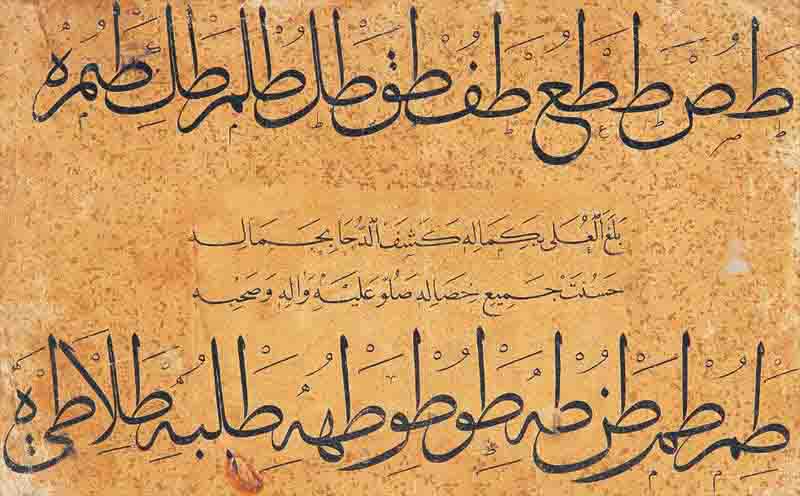 ط طص طط طع طف طق طل طك
بَلَغَ الْعُلَى بِكَمَالِهِ كَشَفَ الدُّجَا بِجَمَالِهِ
حَسُنَتْ جَمِيعُ خِصَالِهِ صَلُّوا عَلَيْهِ وَالِهِ وَصَحْبِهِ
طم طم طن طه طو طو طهه طلا طى